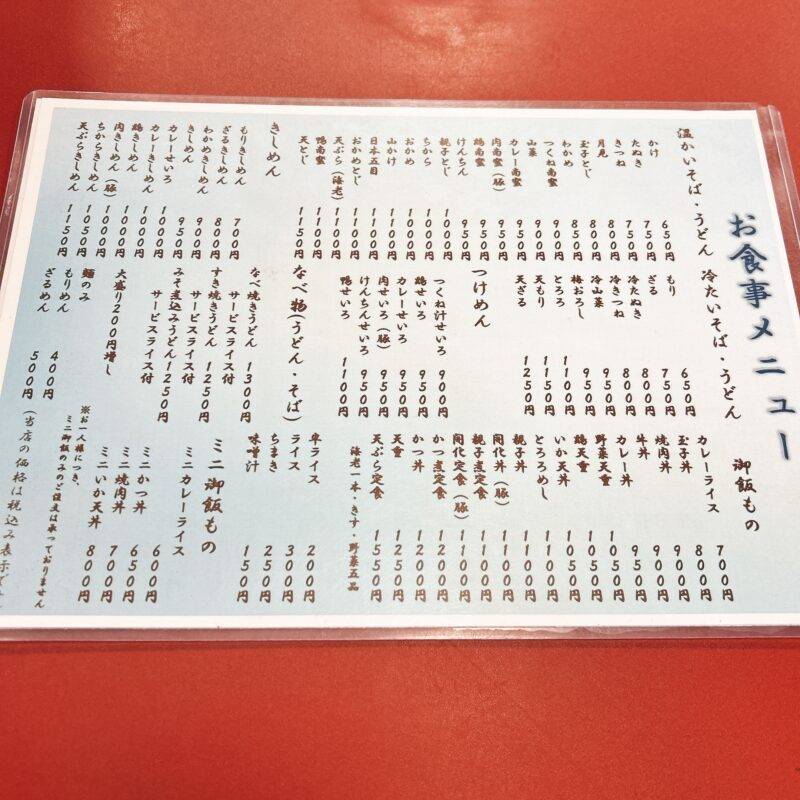 お食事メニュー
温かいそば・うどん
かけ 650円
たぬき 750円
きつね 750円
月見 800円
玉子とじ 800円
わかめ 800円
つくね南蛮 900円
山菜 900円
カレー南蛮 950円
肉南蛮（豚） 950円
鶏南蛮 950円
けんちん 950円
親子とじ 1000円
ちから 1000円
おかめ 1000円
山かけ 1100円
日本五目 1100円
おかめとじ 1100円
天ぷら（海老） 1100円
鴨南蛮 1100円
天とじ 1150円
きしめん
もりきしめん 700円
ざるきしめん 800円
わかめきしめん 900円
きしめん 950円
カレーせいろ 1000円
カレーきしめん 1000円
鶏きしめん 1000円
肉きしめん（豚） 1000円
ちからきしめん 1050円
天ぷらきしめん 1150円
冷たいそば・うどん
もり 650円
ざる 750円
冷たぬき 800円
冷きつね 800円
冷山菜 950円
梅おろし 950円
とろろ 1100円
天もり 1150円
天ざる 1250円
つけめん
つくね汁せいろ 900円
鶏せいろ 950円
カレーせいろ 950円
肉せいろ（豚） 950円
けんちんせいろ 950円
鴨せいろ 1100円
なべ物（うどん・そば）
なべ焼きうどん 1300円
サービスライス付
すき焼きうどん 1250円
サービスライス付
みそ煮込みうどん 1250円
サービスライス付
大盛り200円増し
麺のみ
もりめん 400円
ざるめん 500円
御飯もの
カレーライス 700円
玉子丼 800円
焼肉丼 900円
牛丼 900円
カレー丼 950円
野菜天重 1050円
鶏天重 1050円
いか天丼 1050円
とろろめし 1100円
親子丼 1100円
開化丼（豚） 1100円
親子煮定食 1100円
開化定食（豚） 1100円
かつ煮定食 1200円
かつ丼 1200円
天重 1250円
天ぷら定食 1550円
海老一本・きす・野菜五品
半ライス 200円
ライス 300円
ちまき 250円
味噌汁 150円
ミニ御飯もの
ミニカレーライス 600円
ミニかつ丼 650円
ミニ焼肉丼 700円
ミニいか天丼 800円
※お一人様につき、
ミニ御飯のみのご注文は承っておりません
（当店の価格は税込み表示で